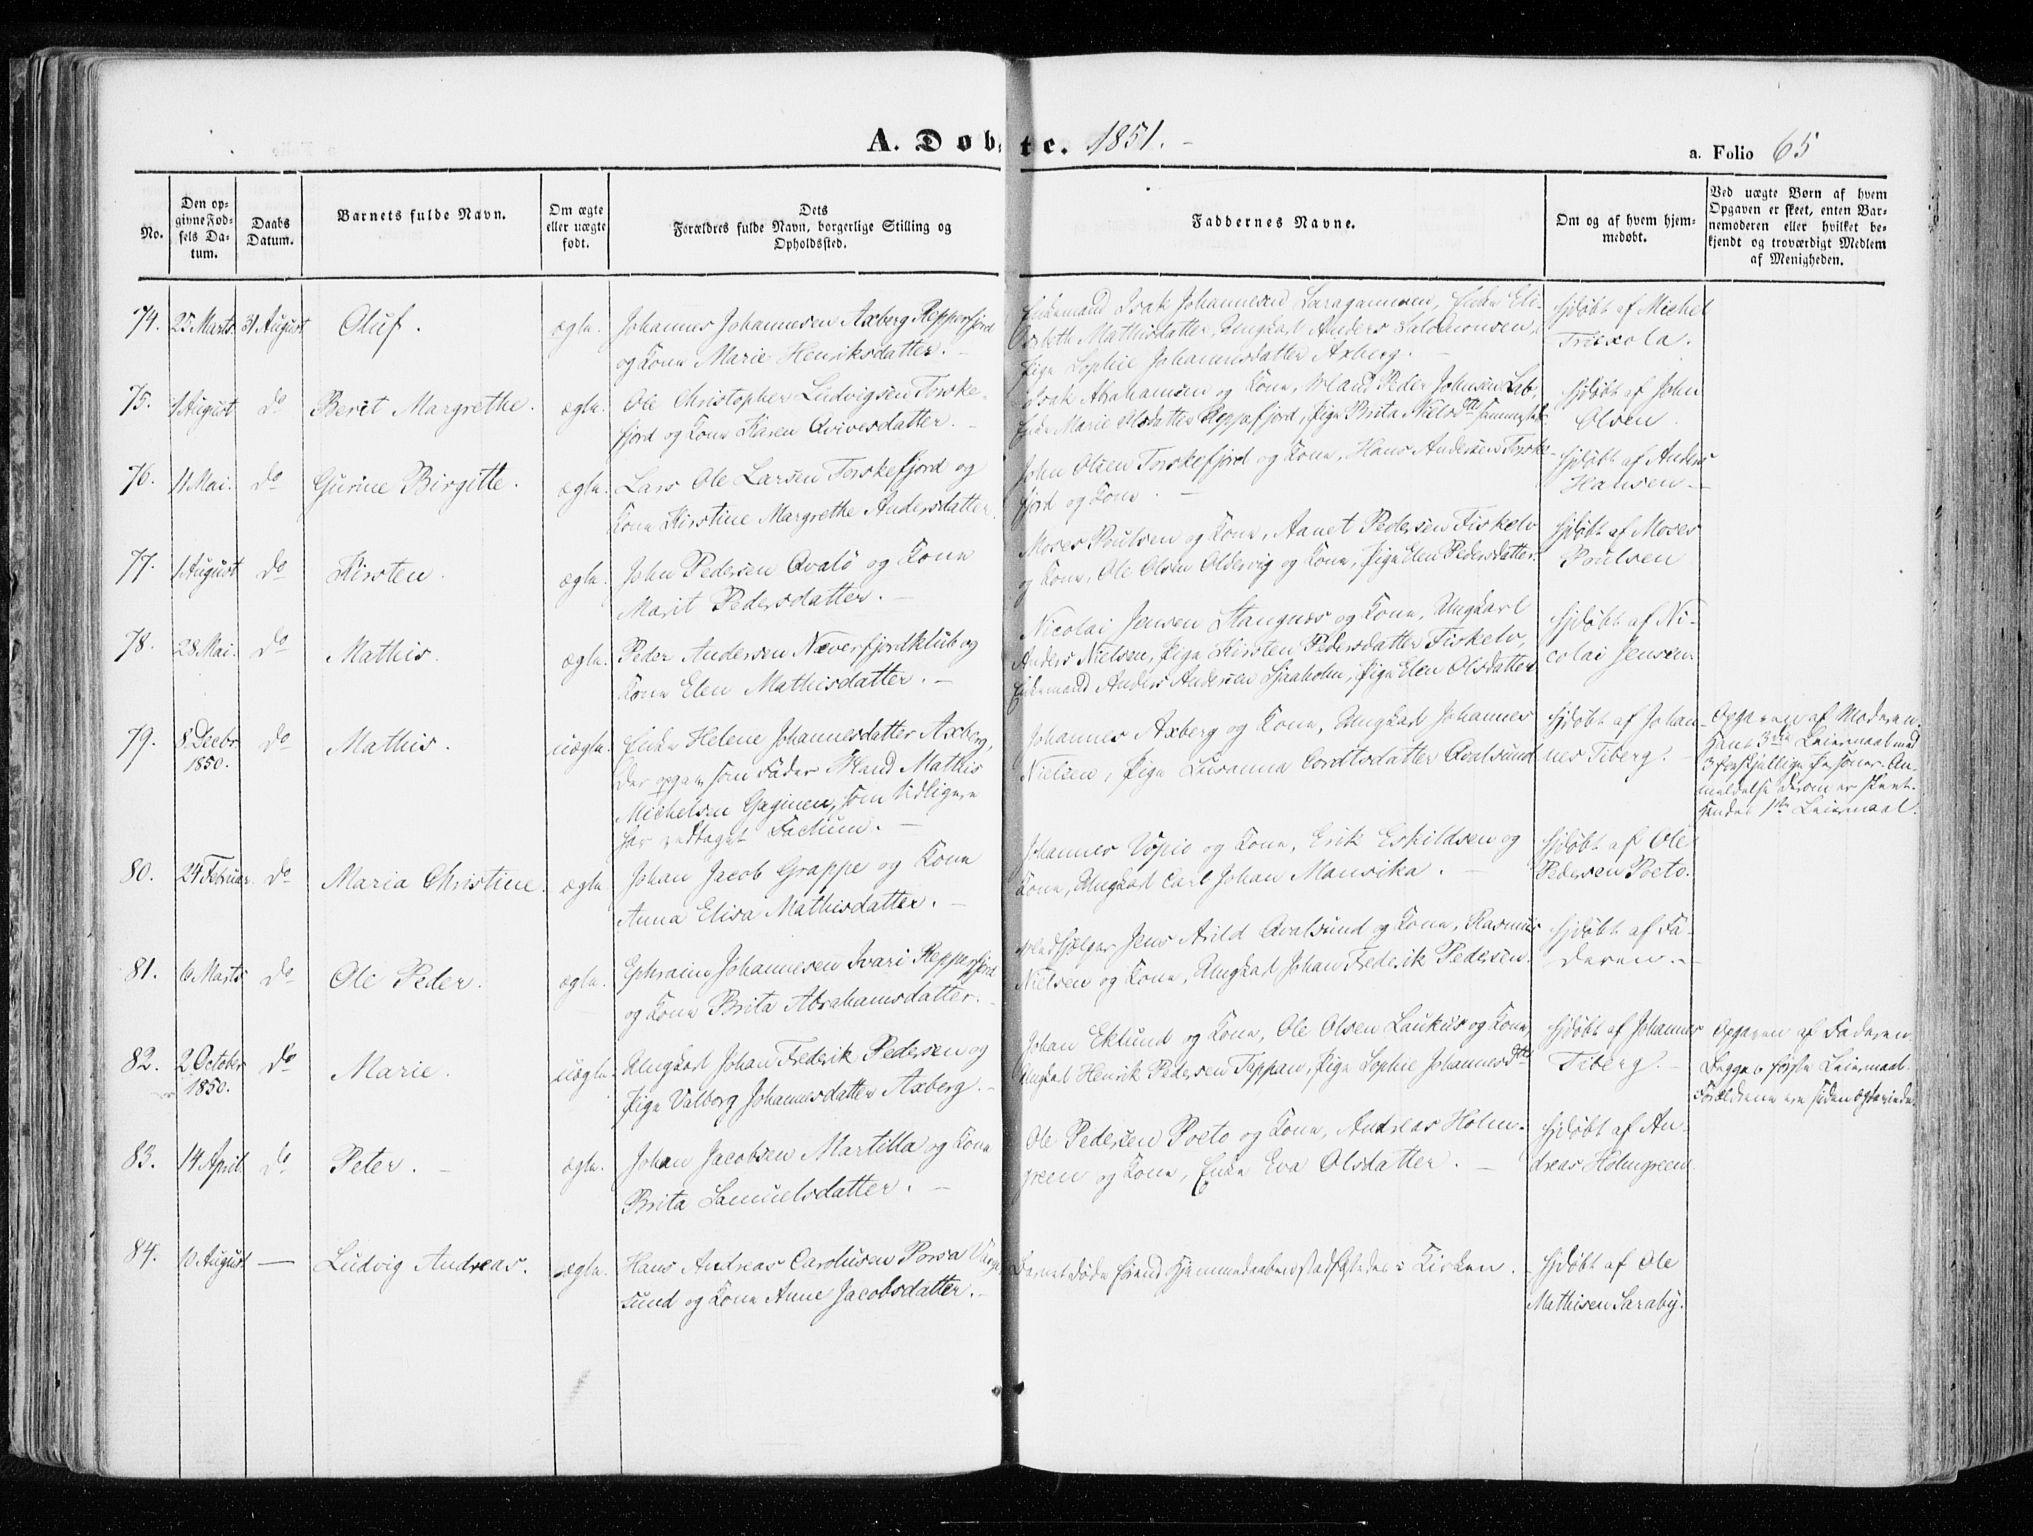 A. Døbte. 1851.
a. Folio 65
No.
Den op-
givne Fød-
sels Da-
tum.
Daabs
Datum.
Barnets fulde Navn.
Om ægte
eller uægte
født.
Dets
Forældres fulde Navn, borgerlige Stilling og
Opholdssted.
Faddernes Navne.
Om og af hvem hjem-
medøbt.
Ved uægte Børn af hvem
Opgaven er skeet, enten Bar-
nemoderen eller hvilket be-
kjendt og troværdigt Medlem
af Menigheden.
74. 25 Marts 31 August Oluf. ægte.
Johannes Johannesen Axberg Repparfjord
og Kone Marie Henriksdatter. -
Enkemand Isak Johannesen, Enke Eli-
sabeth Mathisdatter, Ungkarl Anders Salomonsen,
Pige Sophie Johannesdatter Axberg. -
Hjdøbt af Michel
75. 1 August do Berit Margrethe. ægte.
Ole Christopher Ludvigsen Torske-
fjord og Kone Karen Qvivesdatter. -
Isak Abrahamsen og Kone, Peder Johnsen
Enke Marie Olsdatter Repparfjord, Pige Brita Nielsdtr
Hjdøbt af John
Olsen.
76. 11 Mai. do Gurine Birgitte. ægte.
Lars Ole Larsen Torskefjord og
Kone Kirstine Margrethe Andersdatter.
John Olsen Torskefjord og Kone, Hans Andersen Torske-
fjord og Kone. -
Hjdøbt af Anders
Hansen. -
77. 1 August do Kirsten. ægte.
John Pedersen Qvalö og Kone
Marit Pedersdatter. -
Moses Poulsen og Kone, Aanet Pedersen Fiskelv
og Kone, Ole Olsen Oldervig og Kone, Pige Elen Pedersdatter.
Hjdøbt af Moses
Poulsen
78. 28 Mai. do Mathis. ægte.
Peder Andersen Næverfjordklub og
Kone Elen Mathisdatter. -
Nicolai Jensen Stangnes og Kone, Ungkarl
Anders Nielsen, Pige Kirsten Pedersdatter Fiskelv,
Enkemand Anders Andersen Sjaaholm, Pige Elen Olsdatter
Hjdøbt af Ni-
colai Jensen
79. 8 Decbr. 1850. do Mathis. uægte.
Enke Helene Johannesdatter Axberg,
der opgav som Fader Mathis
Michelsen Gaginen, som tidligere
har vedtaget Factum. -
Johannes Axberg og Kone, Ungkarl Johannes
Nielsen, Pige Susanna Cordtsdatter Qvalsund
Hjdøbt af Johan-
nes Tiberg.
Opgaven af Moderen.
Hans 3die Leiermaal med
3 forskjellige Personer. An-
meldelse derom er skeet.
Hendes 1ste Leiermaal.
80. 24 Februar. do Maria Christine. ægte.
Johan Jacob Grappe og Kone
Anna Elisa Mathisdatter. -
Johannes Vöpio og Kone, Erik Eskildsen og
Kone, Ungkarl Carl Johan Mansika. -
Hjdøbt af Ole
Pedersen Poeto.
81. 6 Marts do Ole Peder. ægte.
Ephraim Johannesen Ivari Repparfjord
og Kone Brita Abrahamsdatter. -
Medhjelper Jens Arild Qvalsund og Kone, Rasmus
Nielsen og Kone, Ungkarl Johan Frederik Pedersen.
Hjdøbt af Fa-
deren. -
82. 2 October 1850. do Marie. uægte.
Ungkarl Johan Frederik Pedersen og
Pige Valborg Johannesdatter Axberg. -
Johan Eklund og Kone, Ole Olsen Laukus og Kone,
Ungkarl Henrik Pedersen Tappan, Pige Sophie Johannesdtr
Hjdøbt af Johannes
Tiberg. -
Opgaven af Faderen.
Begges første Leiermaal.
Forældrene ere siden ægteviede.
83. 14 April. do Peter. - ægte.
Johan Jacobsen Martilla og Kone
Brita Samuelsdatter. -
Ole Pedersen Poeto og Kone, Andreas Holm-
green og Kone, Enke Eva Olsdatter. -
Hjdøbt af An-
dreas Holmgreen
84. 10 August - Ludvig Andreas. ægte.
Hans Andreas Carolusen Porsa Varg-
sund og Kone Anne Jacobsdatter. -
Barnet døde førend Hjemmedaaben stadfæstedes i Kirken.
Hjdøbt af Ole
Mathisen Saraby.